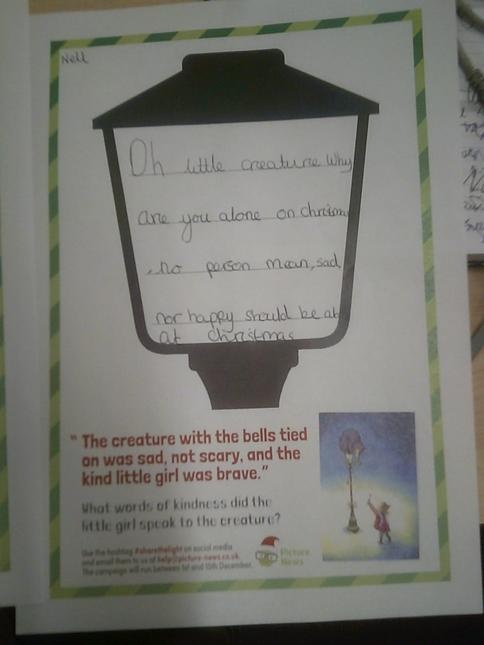 Nell
Oh little creature Why
are you alone on christm
no person mean, sad
nor happy should be al
at christmas
" The creature with the bells tied
on was sad, not scary, and the
kind little girl was brave."
What words of kindness did the
little girl speak to the creature?
Use the hashtag #sharethelight on social media
and email them to us at help@picture-news.co.uk.
The campaign will run between 1st and 15th December.
Picture
News